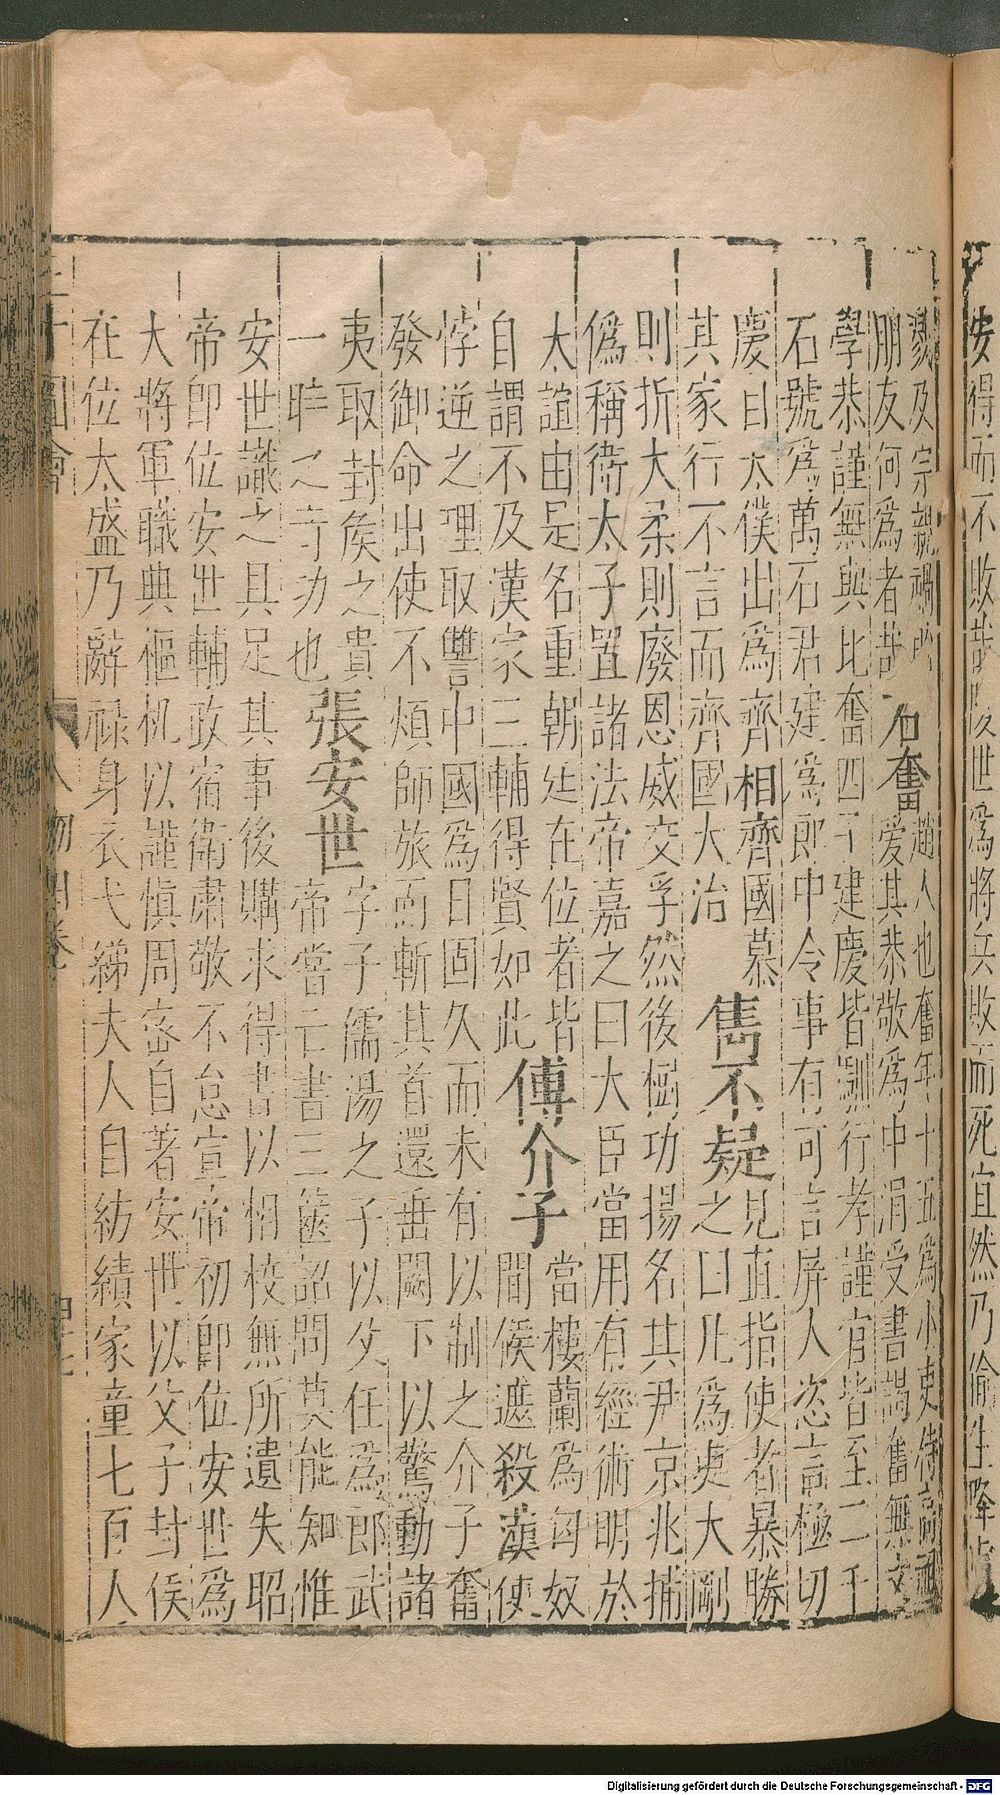 安得而不敗哉後世爲將兵敗而死宜然乃偷生降
戮及宗親禍
朋友何爲者哉
石奮
趙人也奮年十五爲小吏侍高祖
愛其恭敬爲中涓受書謁奮無文
學恭謹無與比奮四子建慶皆馴行孝謹官皆至二千
石號爲萬石君建爲郎中令事有可言屏人恣言極切
慶曰太僕出爲齊相齊國慕
其家行不言而齊國大治
雋不疑
見直指使者暴勝
之曰凡爲吏大剛
則折大柔則廢恩威交孚然後樹功揚名其尹京兆捕
僞稱衛太子置諸法帝嘉之曰大臣當用有經術明於
太誼由是名重朝廷在位者皆
自謂不及漢家三輔得賢如此
傅介子
當樓蘭爲匈奴
間候遮殺漢使
悖逆之理取讐中國爲日固久而未有以制之介子奮
發御命出使不煩師旅而斬其首還垂闕下以驚動諸
夷取封矦之貴
一時之竒功也
張安世
字子儒湯之子以父任爲郎武
帝嘗亡書三篋詔問莫能知惟
安世識之具足其事後購求得書以相校無所遺失昭
帝即位安世輔政宿衛肅敬不怠宣帝初即位安世爲
大將軍職典樞机以謹慎周宻自著安世以父子封侯
在位太盛乃辭祿身衣弋綈夫人自紡績家童七百人
三才圖會
人物四卷
Digitalisierung gefördert durch die Deutsche Forschungsgemeinschaft - DFG